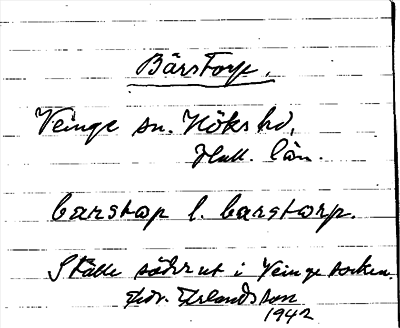 Bärstorp.
Veinge sn. Höks hd,
Hall. län.
barstap l. barstorp.
Ställe söder ut i Veinge socken.
Erlandsson
1942